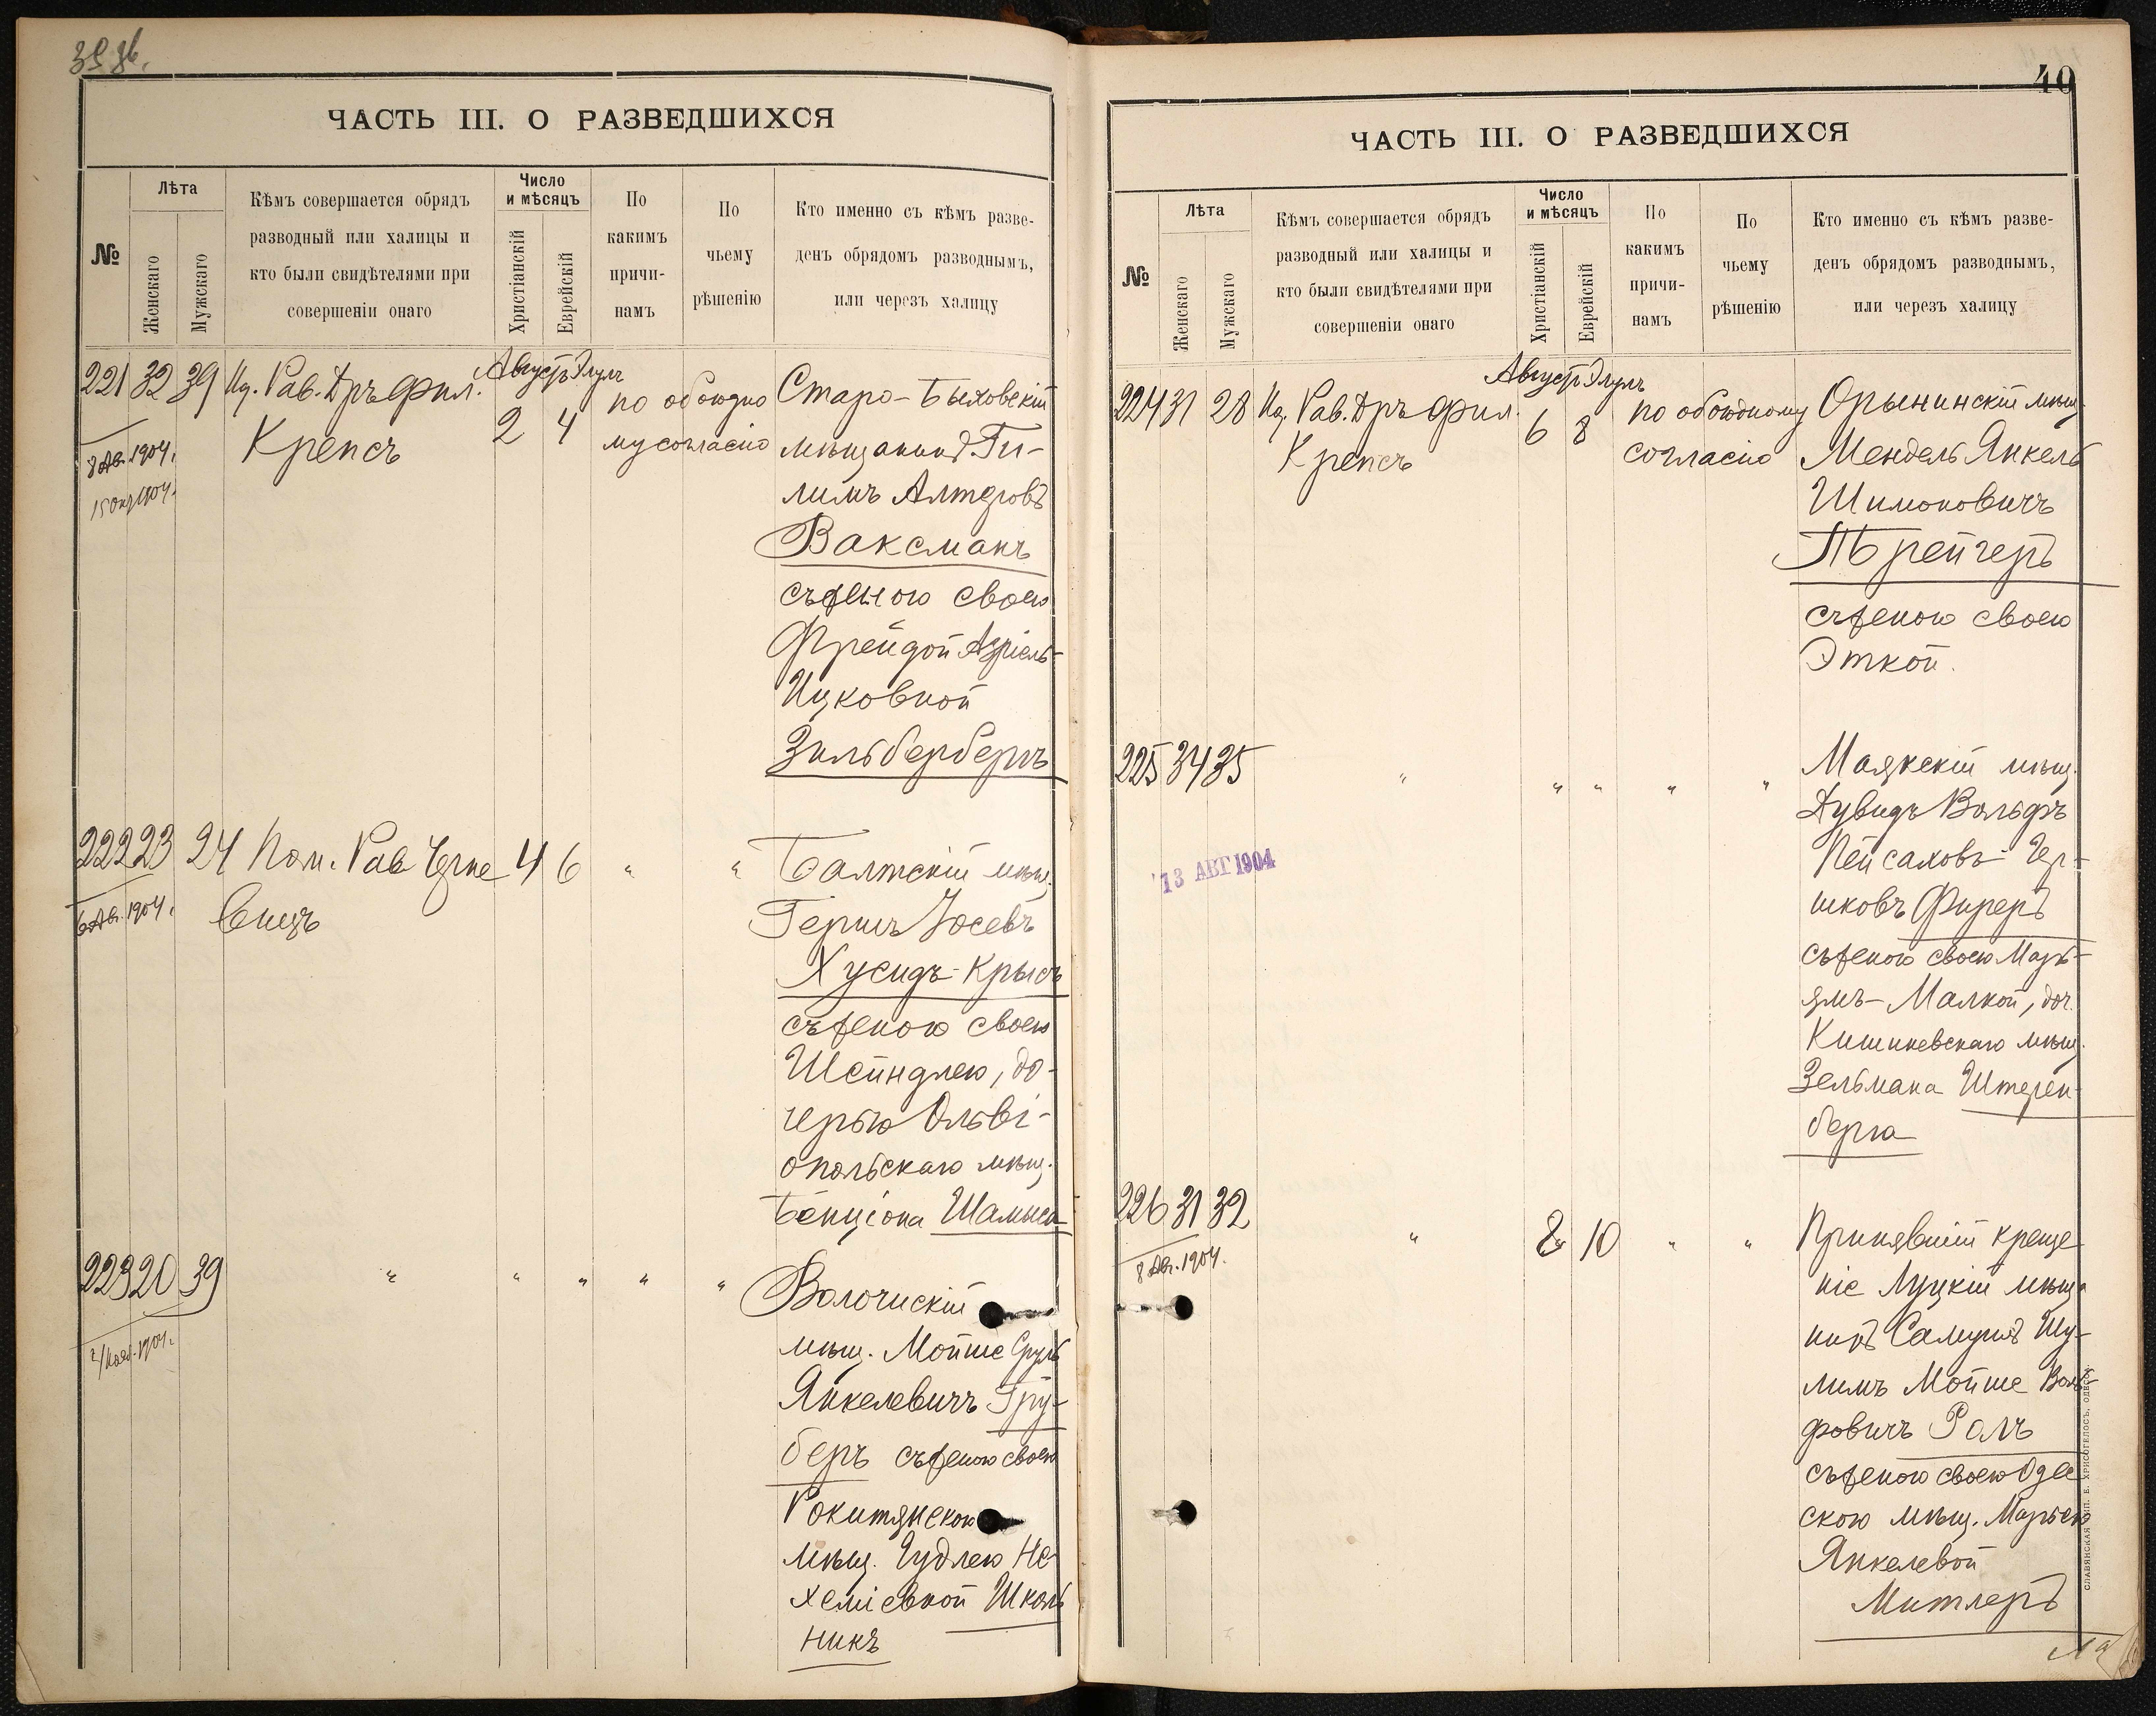 ЧАСТЬ III. О РАЗВЕДШИХСЯ
№
Лѣта
Женскаго
Мужскаго
Кѣмъ совершается обрядъ
разводный или халицы и
кто были свидѣтелями при
совершеніи онаго
Число
и мѣсяцъ
Христіанскій
Еврейскій
По
какимъ
причи-
намъ
По
чьему
рѣшенію
Кто именно съ кѣмъ разве-
денъ обрядомъ разводнымъ,
или черезъ халицу
221 32 39 Од. Рав. Дръ Фил. Августъ Элулъ по обоюдно Старо-Быховскій
8 Ав. 1904. Крепсъ 2 4 му согласію мѣщанинъ Ги-
15 Окт 1904. лимъ Алтеровъ
Ваксманъ
съ женою своею
Фрейдой Азріель-
Ицковной
Зильбербергъ
222 23 24 Пом. Рав Черне 4 6 " " Балтскій мѣщ.
6 Ав. 1904. вицъ Гершъ Іосевъ
Хусидъ-Крысъ
съ женою своею
Шейндлею, до-
черью Ольві-
опольскаго мѣщ.
Бенціона Шамиса
223 20 39 " " " " " Волочискій
2/Нояб. 1904. мѣщ. Мойше Сруль
Янкелевичъ Гру-
беръ съ женою своею
Рокитянскою
мѣщ. Гудлею Не-
хеміевной Школь
никъ
40
ЧАСТЬ III. О РАЗВЕДШИХСЯ
№
Лѣта
Женскаго
Мужскаго
Кѣмъ совершается обрядъ
разводный или халицы и
кто были свидѣтелями при
совершеніи онаго
Число
и мѣсяцъ
Христіанскій
Еврейскій
По
какимъ
причи-
намъ
По
чьему
рѣшенію
Кто именно съ кѣмъ разве-
денъ обрядомъ разводнымъ,
или черезъ халицу
224 31 28 Од. Рав. Дръ Фил. Августъ Элулъ по обоюдному Орынинскій мѣщ.
Крепсъ 6 8 согласію Мендель Янкель
Шимоновичъ
Трейгеръ
съ женою своею
Эткой.
225 34 35 " " " " " Маякскій мѣщ.
Дувидъ Вольфъ
Пейсаховъ-Гер-
13 АВГ 1904
шковъ Фиреръ
съ женою своею Марь-
ямъ-Малкой, доч.
Кишиневскаго мѣщ.
Зельмана Штерен-
берга
226 31 32 " 8 10 " " Принявшій креще
8 Ав. 1904. ніе Луцкій мѣща
нинъ Самуилъ Шу-
лимъ Мойше Воль-
фовичъ Ролъ
съ женою своею Одес
скою мѣщ. Марьею
Янкелевой
Митлеръ
СЛАВЯНСКАЯ ТИП. Е. ХРИСОГЕЛОСЪ, ОДЕССА.